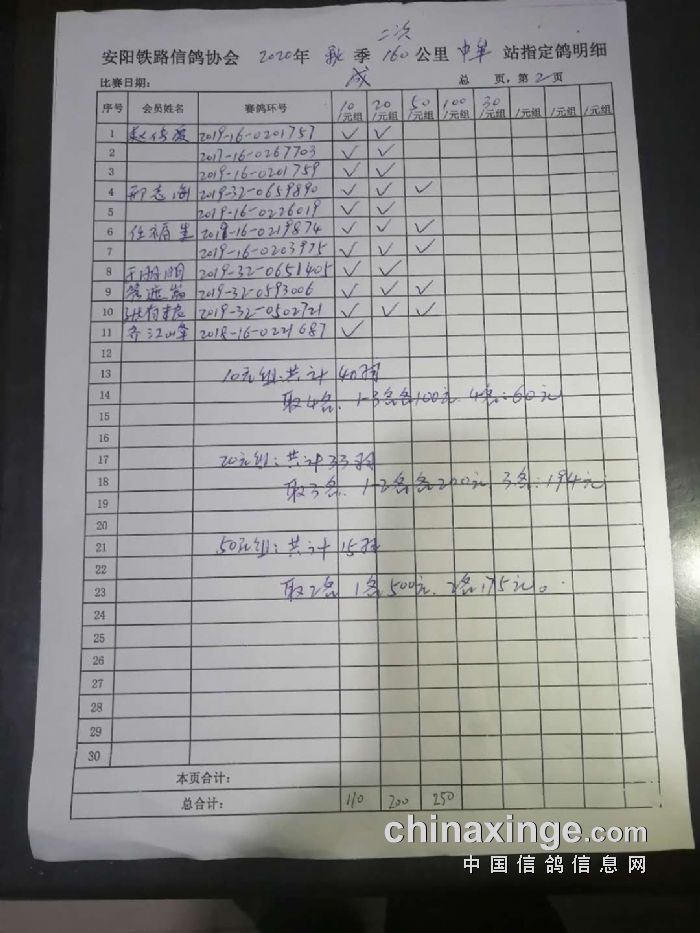 二次
安阳铁路信鸽协会 2020年 秋 季 160 公里 中牟 站指定鸽明细
比赛日期: 成 总 页,第2页
序号 会员姓名 赛鸽环号 10/元组 20/元组 50/元组 100/元组 30/元组 /元组 /元组 /元组
1 2019-16-0201757 ✓ ✓
2 2017-16-0267703 ✓ ✓
3 2019-16-0201759 ✓ ✓
4 邢志海 2019-32-0659890 ✓ ✓ ✓
5 2019-16-0226019 ✓ ✓
6 任福生 2018-16-0219874 ✓ ✓ ✓
7 2019-16-0203975 ✓ ✓ ✓
8 2019-32-0651405 ✓ ✓
9 2019-32-0593006 ✓ ✓ ✓
10 2019-32-0502721 ✓ ✓ ✓
11 齐江山 2018-16-0221687 ✓
12
13 10元组:共计40羽
14 取4名、1-3名各100元、4名:60元
15
16
17 20元组:共计33羽
18 取3名、1-2名各200元 3名:194元
19
20
21 50元组:共计15羽
22
23 取2名 1名500元、2名175元。
24
25
26
27
28
29
30
本页合计:
总合计: 110 200 250
chinaxinge.com
中国信鸽信息网